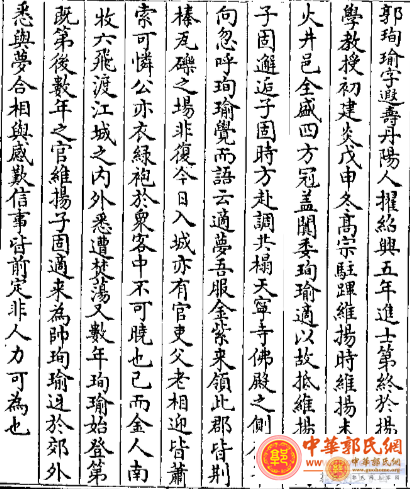 郭珣瑜字遐壽丹陽人擢紹興五年進士第終於揚
學教授初建炎戊申冬高宗駐蹕維揚時維揚未
火井邑全盛四方冠蓋闐委珣瑜適以故抵維揚
子固邂逅子固時方赴調共榻天寧寺佛殿之側
向忽呼珣瑜覺而語云適夢吾服金紫來領此郡皆荆
榛瓦礫之場非復今日入城亦有官吏父老相迎皆蕭
索可憐公亦衣綠袍於衆客中不可曉也已而金人南
牧六飛渡江城之内外悉遭焚蕩又數年珣瑜始登第
既第後數年之官維揚子固適來為帥珣瑜迓於郊外
悉與夢合相與感歎信事皆前定非人力可為也
中華郭氏網